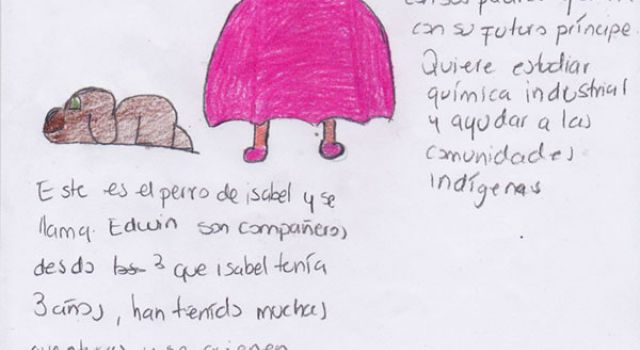 con su futuro príncipe.
Quiere estudiar
química industrial
y ayudar a las
comunidades
indígenas
Este es el perro de isabel y se
llama. Edwin son compañeros
desdo los 3 que isabel tenía
3 años, han tenido muchas